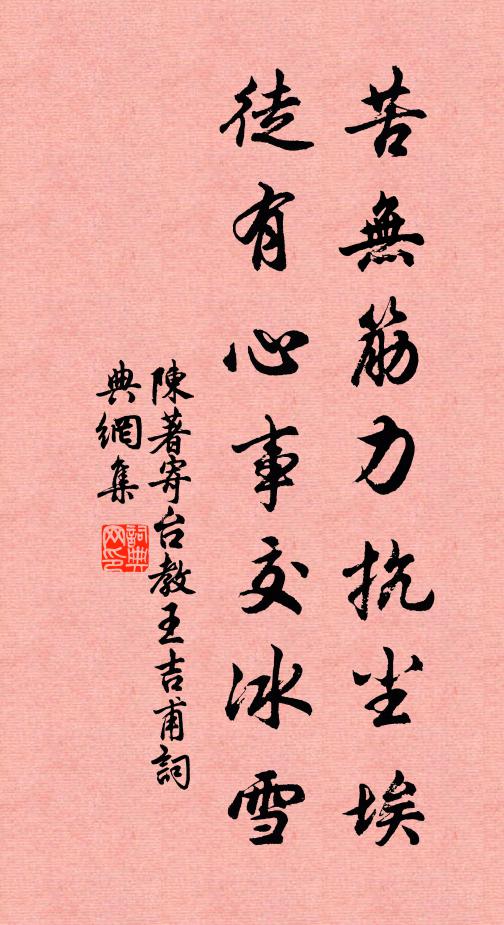 苦無筋力抗尘埃
徒有心事交冰雪
陳著寄台教王吉甫詞
典網集
詞典
网印